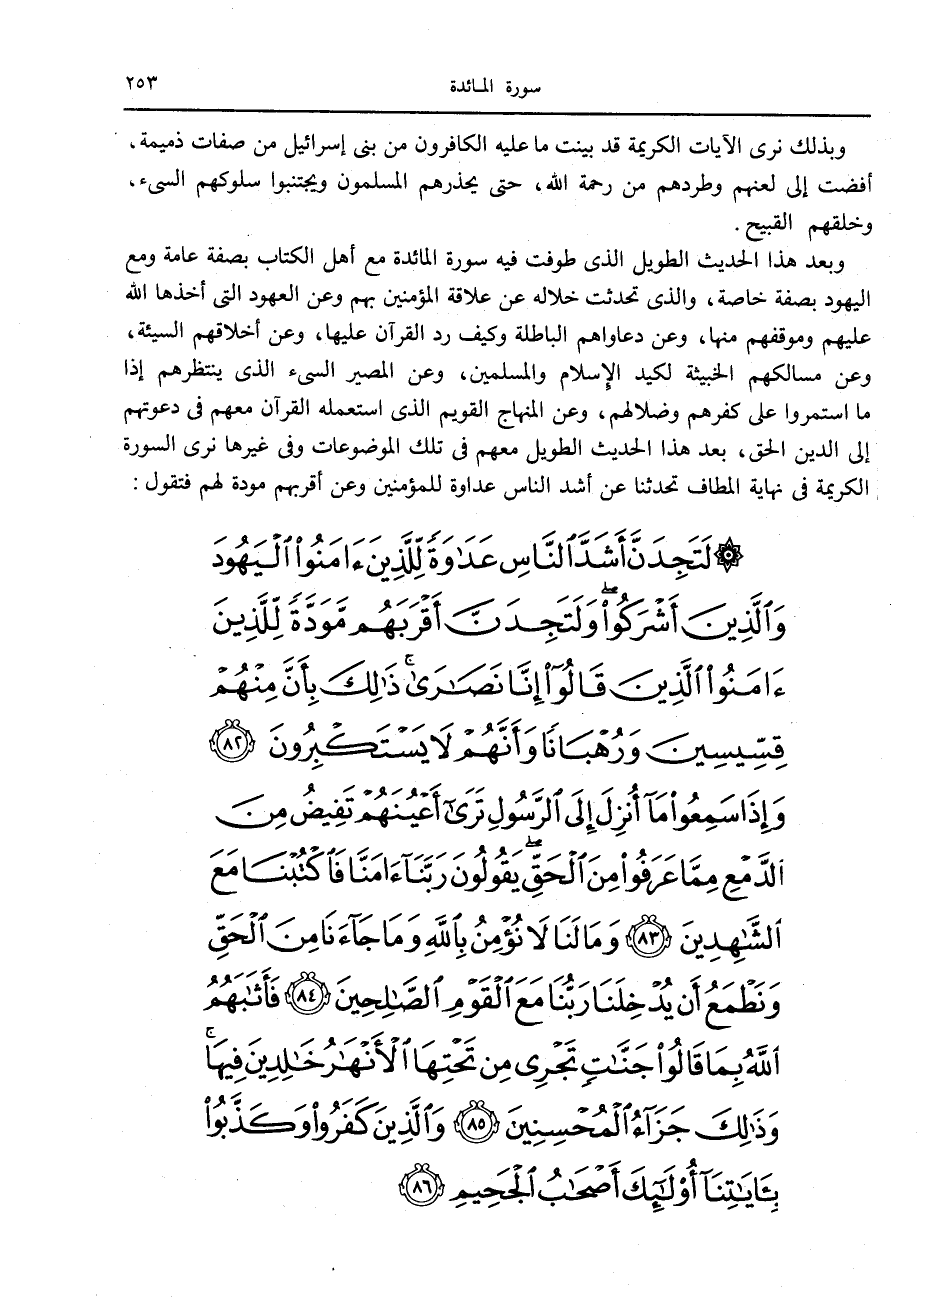 سورة المائدة ٢٥٣
وبذلك نرى الآيات الكريمة قد بينت ما عليه الكافرون من بنى إسرائيل من صفات ذميمة،
أفضت إلى لعنهم وطردهم من رحمة الله، حتى يحذرهم المسلمون ويجتنبوا سلوكهم السىء،
وخلقهم القبيح.
وبعد هذا الحديث الطويل الذى طوفت فيه سورة المائدة مع أهل الكتاب بصفة عامة ومع
اليهود بصفة خاصة، والذى تحدثت خلاله عن علاقة المؤمنين بهم وعن العهود التى أخذها الله
عليهم وموقفهم منها، وعن دعاواهم الباطلة وكيف رد القرآن عليها، وعن أخلاقهم السيئة،
وعن مسالكهم الخبيثة لكيد الإسلام والمسلمين، وعن المصير السىء الذى ينتظرهم إذا
ما استمروا على كفرهم وضلالهم، وعن المنهاج القويم الذى استعمله القرآن معهم فى دعوتهم
إلى الدين الحق، بعد هذا الحديث الطويل معهم فى تلك الموضوعات وفى غيرها نرى السورة
الكريمة فى نهاية المطاف تحدثنا عن أشد الناس عداوة للمؤمنين وعن أقربهم مودة لهم فتقول :
۞ لَتَجِدَنَّ أَشَدَّ ٱلنَّاسِ عَدَٰوَةً لِّلَّذِينَ ءَامَنُوا۟ ٱلْيَهُودَ
وَٱلَّذِينَ أَشْرَكُوا۟ ۖ وَلَتَجِدَنَّ أَقْرَبَهُم مَّوَدَّةً لِّلَّذِينَ
ءَامَنُوا۟ ٱلَّذِينَ قَالُوٓا۟ إِنَّا نَصَٰرَىٰ ۚ ذَٰلِكَ بِأَنَّ مِنْهُمْ
قِسِّيسِينَ وَرُهْبَانًا وَأَنَّهُمْ لَا يَسْتَكْبِرُونَ ٨٢
وَإِذَا سَمِعُوا۟ مَآ أُنزِلَ إِلَى ٱلرَّسُولِ تَرَىٰٓ أَعْيُنَهُمْ تَفِيضُ مِنَ
ٱلدَّمْعِ مِمَّا عَرَفُوا۟ مِنَ ٱلْحَقِّ ۖ يَقُولُونَ رَبَّنَآ ءَامَنَّا فَٱكْتُبْنَا مَعَ
ٱلشَّٰهِدِينَ ٨٣ وَمَا لَنَا لَا نُؤْمِنُ بِٱللَّهِ وَمَا جَآءَنَا مِنَ ٱلْحَقِّ
وَنَطْمَعُ أَن يُدْخِلَنَا رَبُّنَا مَعَ ٱلْقَوْمِ ٱلصَّٰلِحِينَ ٨٤ فَأَثَٰبَهُمُ
ٱللَّهُ بِمَا قَالُوا۟ جَنَّٰتٍ تَجْرِى مِن تَحْتِهَا ٱلْأَنْهَٰرُ خَٰلِدِينَ فِيهَا ۚ
وَذَٰلِكَ جَزَآءُ ٱلْمُحْسِنِينَ ٨٥ وَٱلَّذِينَ كَفَرُوا۟ وَكَذَّبُوا۟
بِـَٔايَٰتِنَآ أُو۟لَٰٓئِكَ أَصْحَٰبُ ٱلْجَحِيمِ ٨٦